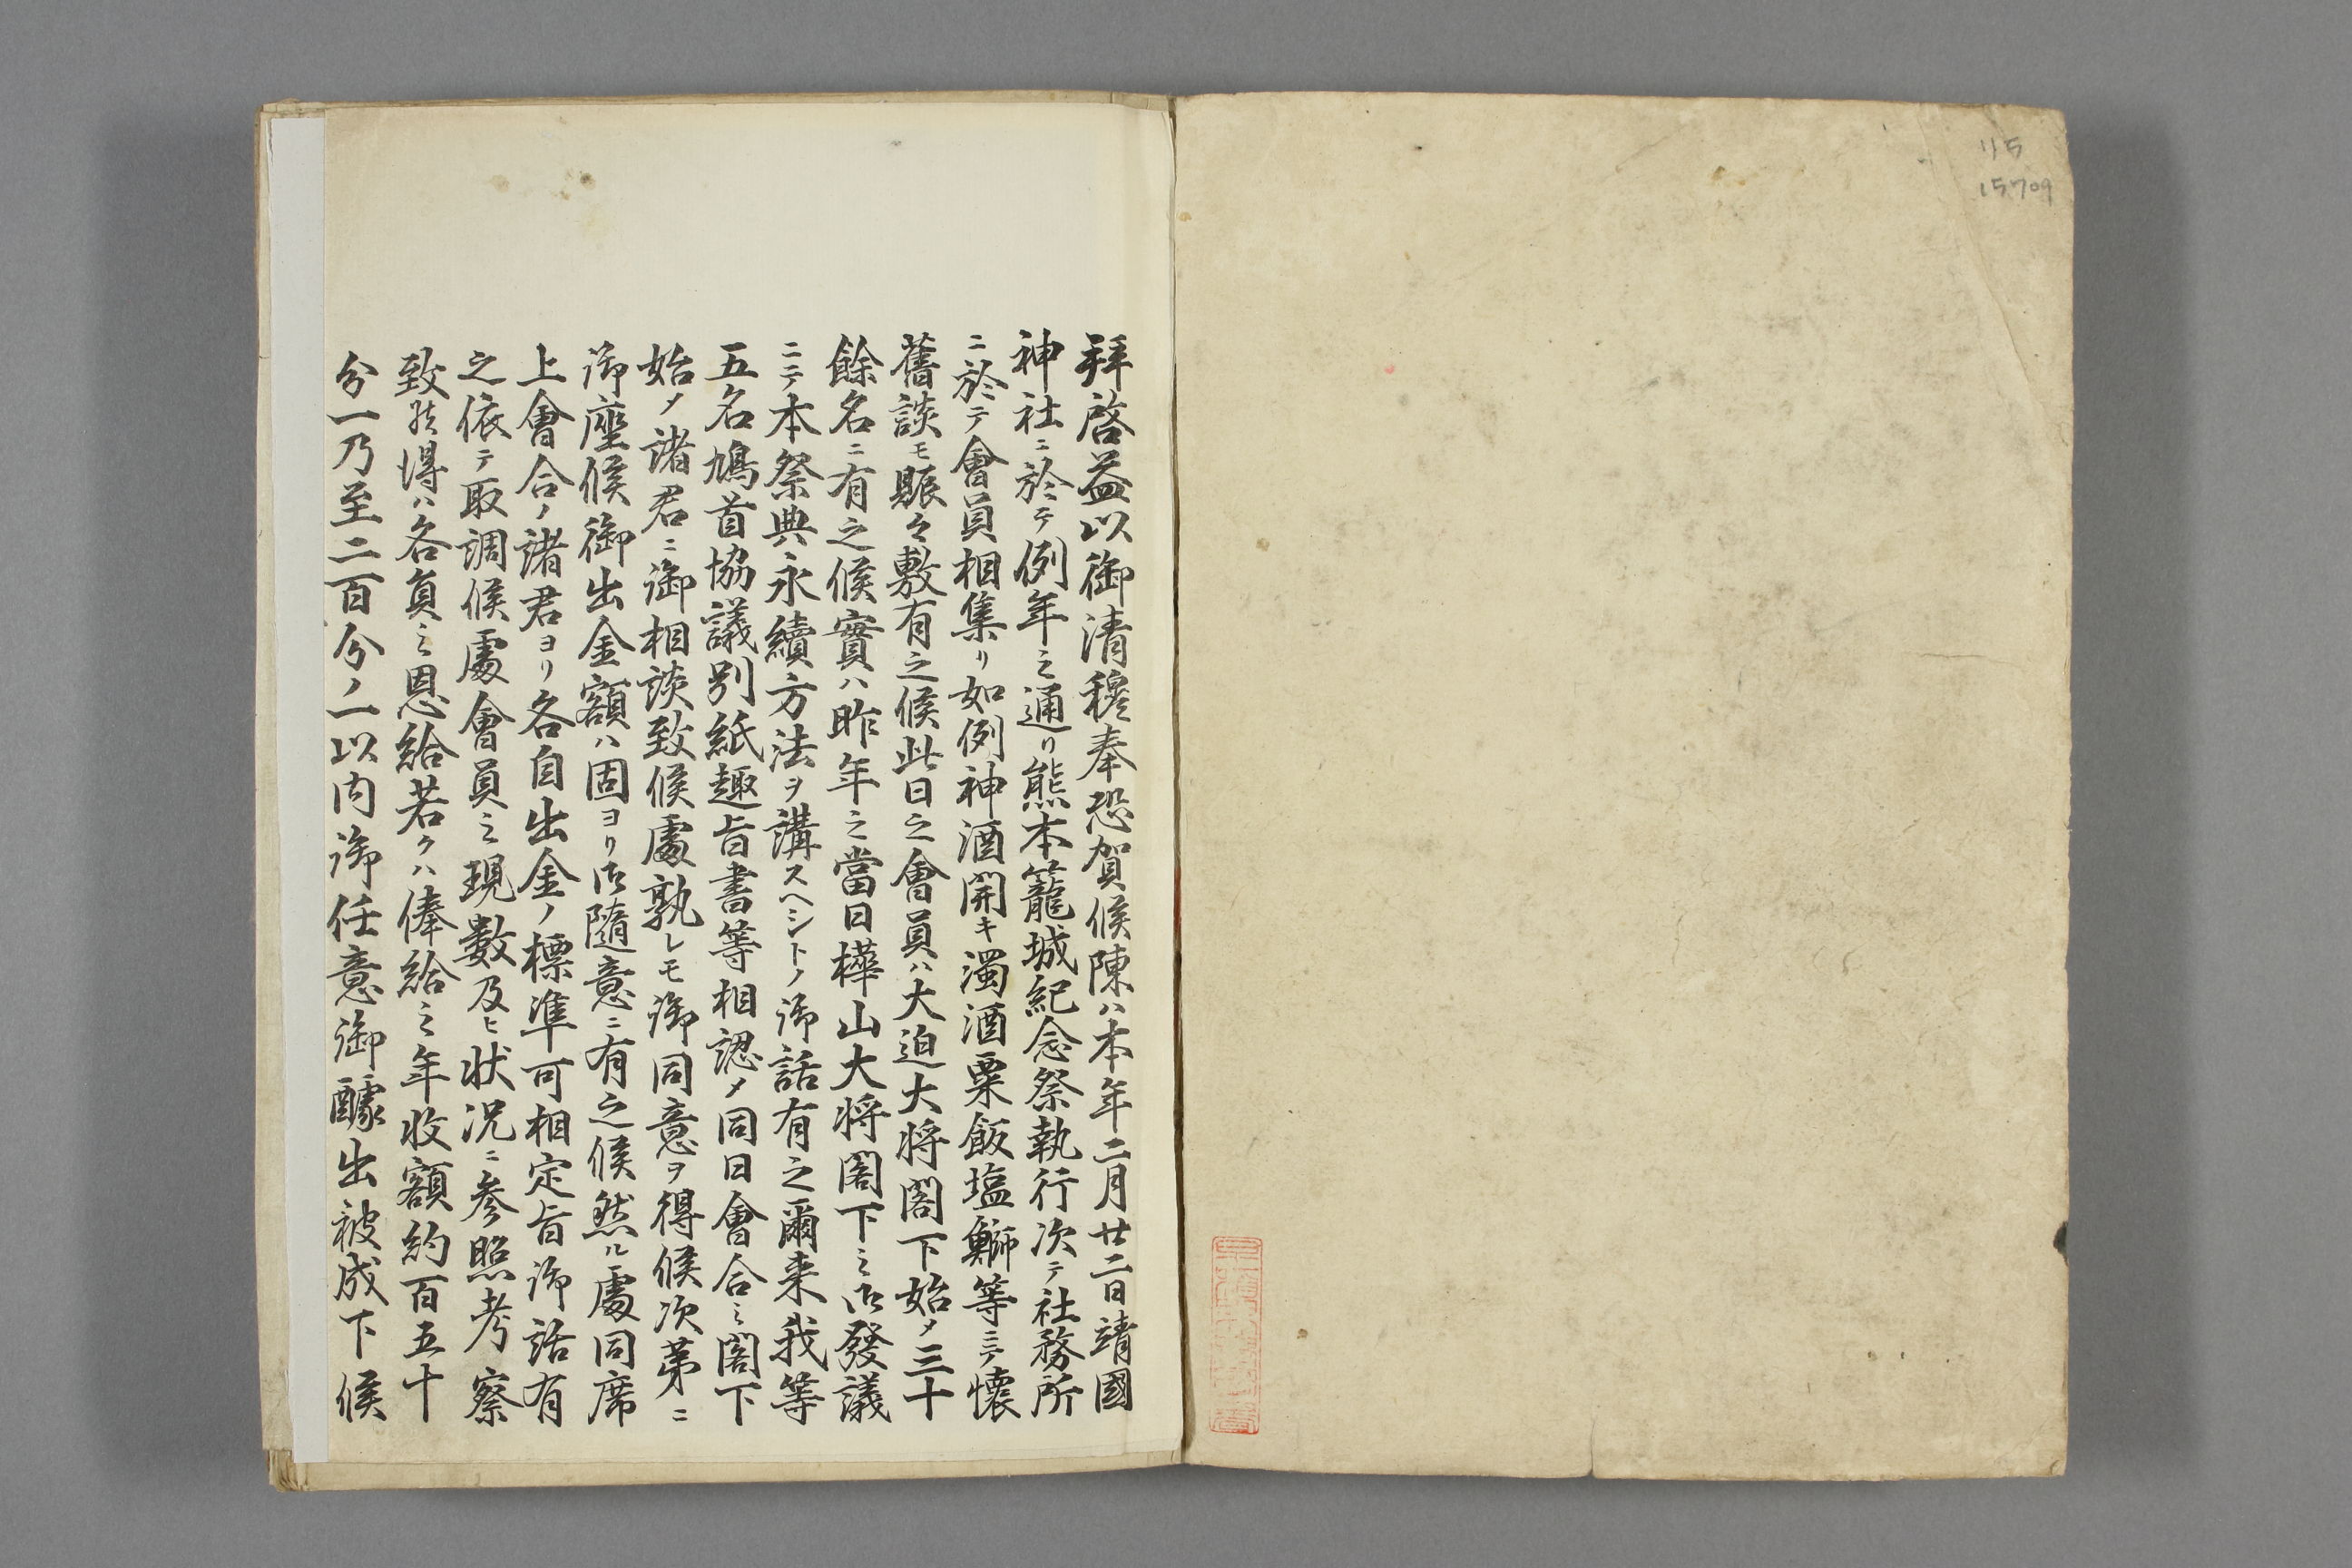 115
15709
拜啓益以御清穆奉恐賀候陳ハ本年二月廿二日靖國
神社ニ於テ例年之通リ熊本籠城紀念祭執行次テ社務所
ニ於テ會員相集リ如例神酒開キ濁酒粟飯塩鰤等ニテ懐
舊談モ賑々敷有之候此日之會員ハ大迫大将閣下始メ三十
餘名ニ有之候實ハ昨年之當日樺山大将閣下之御發議
ニテ本祭典永續方法ヲ講スヘシトノ御話有之爾来我等
五名鳩首協議別紙趣旨書等相認メ同日會合之閣下
始メ諸君ニ御相談致候處孰レモ御同意ヲ得候次第ニ
御座候御出金額ハ固ヨリ御隨意ニ有之候然ル處同席
上會合ノ諸君ヨリ各自出金ノ標準可相定旨御話有
之依テ取調候處會員之現數及ヒ状况ニ参照考察
致候得ハ各員之恩給若クハ俸給之年收額約百五十
分一乃至二百分ノ一以内御任意御醵出被成下候